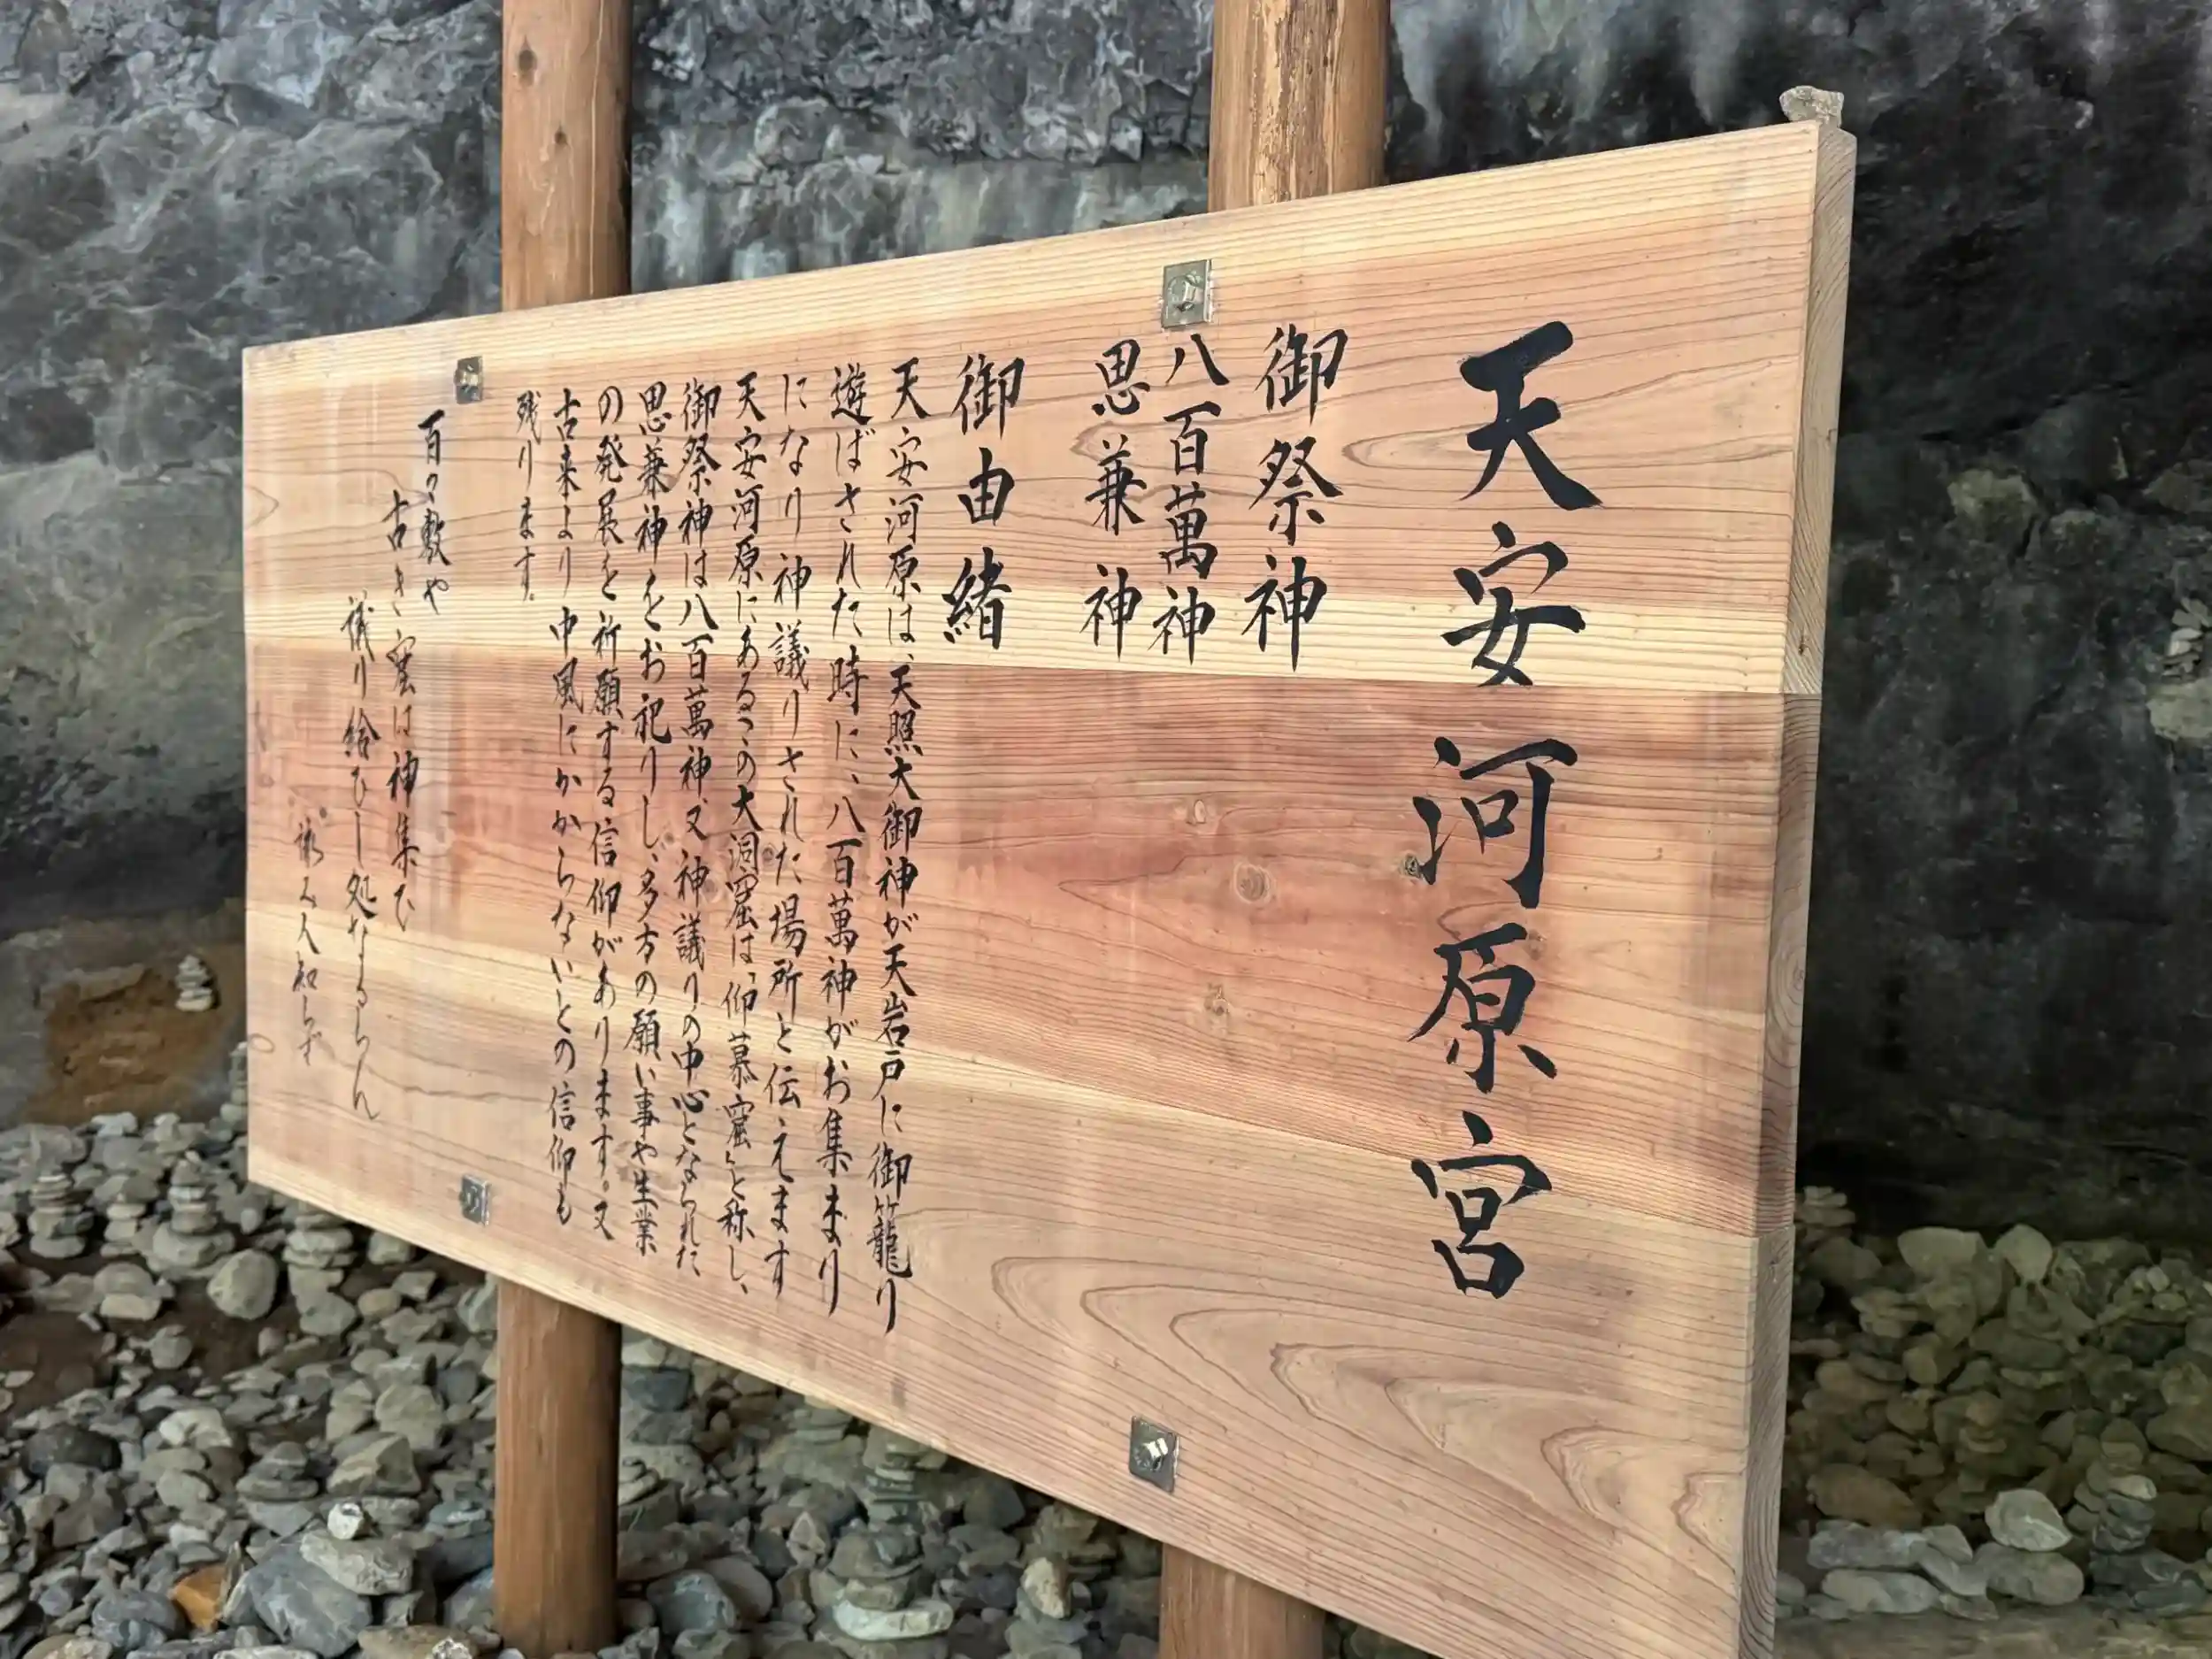 天安河原宮
御祭神
八百萬神
思兼神
御由緒
天安河原は、天照大御神が天岩戸に御籠り
遊ばされた時に、八百萬神がお集まり
になり神議りされた場所と伝えます
天安河原にあるこの大洞窟は「仰慕窟」と称し、
御祭神は八百萬神、又神議りの中心となられた、
思兼神をお祀りし、多方の願い事や生業
の発展を祈願する信仰があります。又
古来より中風にかからないとの信仰も
残ります。
百々敷や
古き窟は神集ひ
議り給ひし処なるらん
詠み人知らず